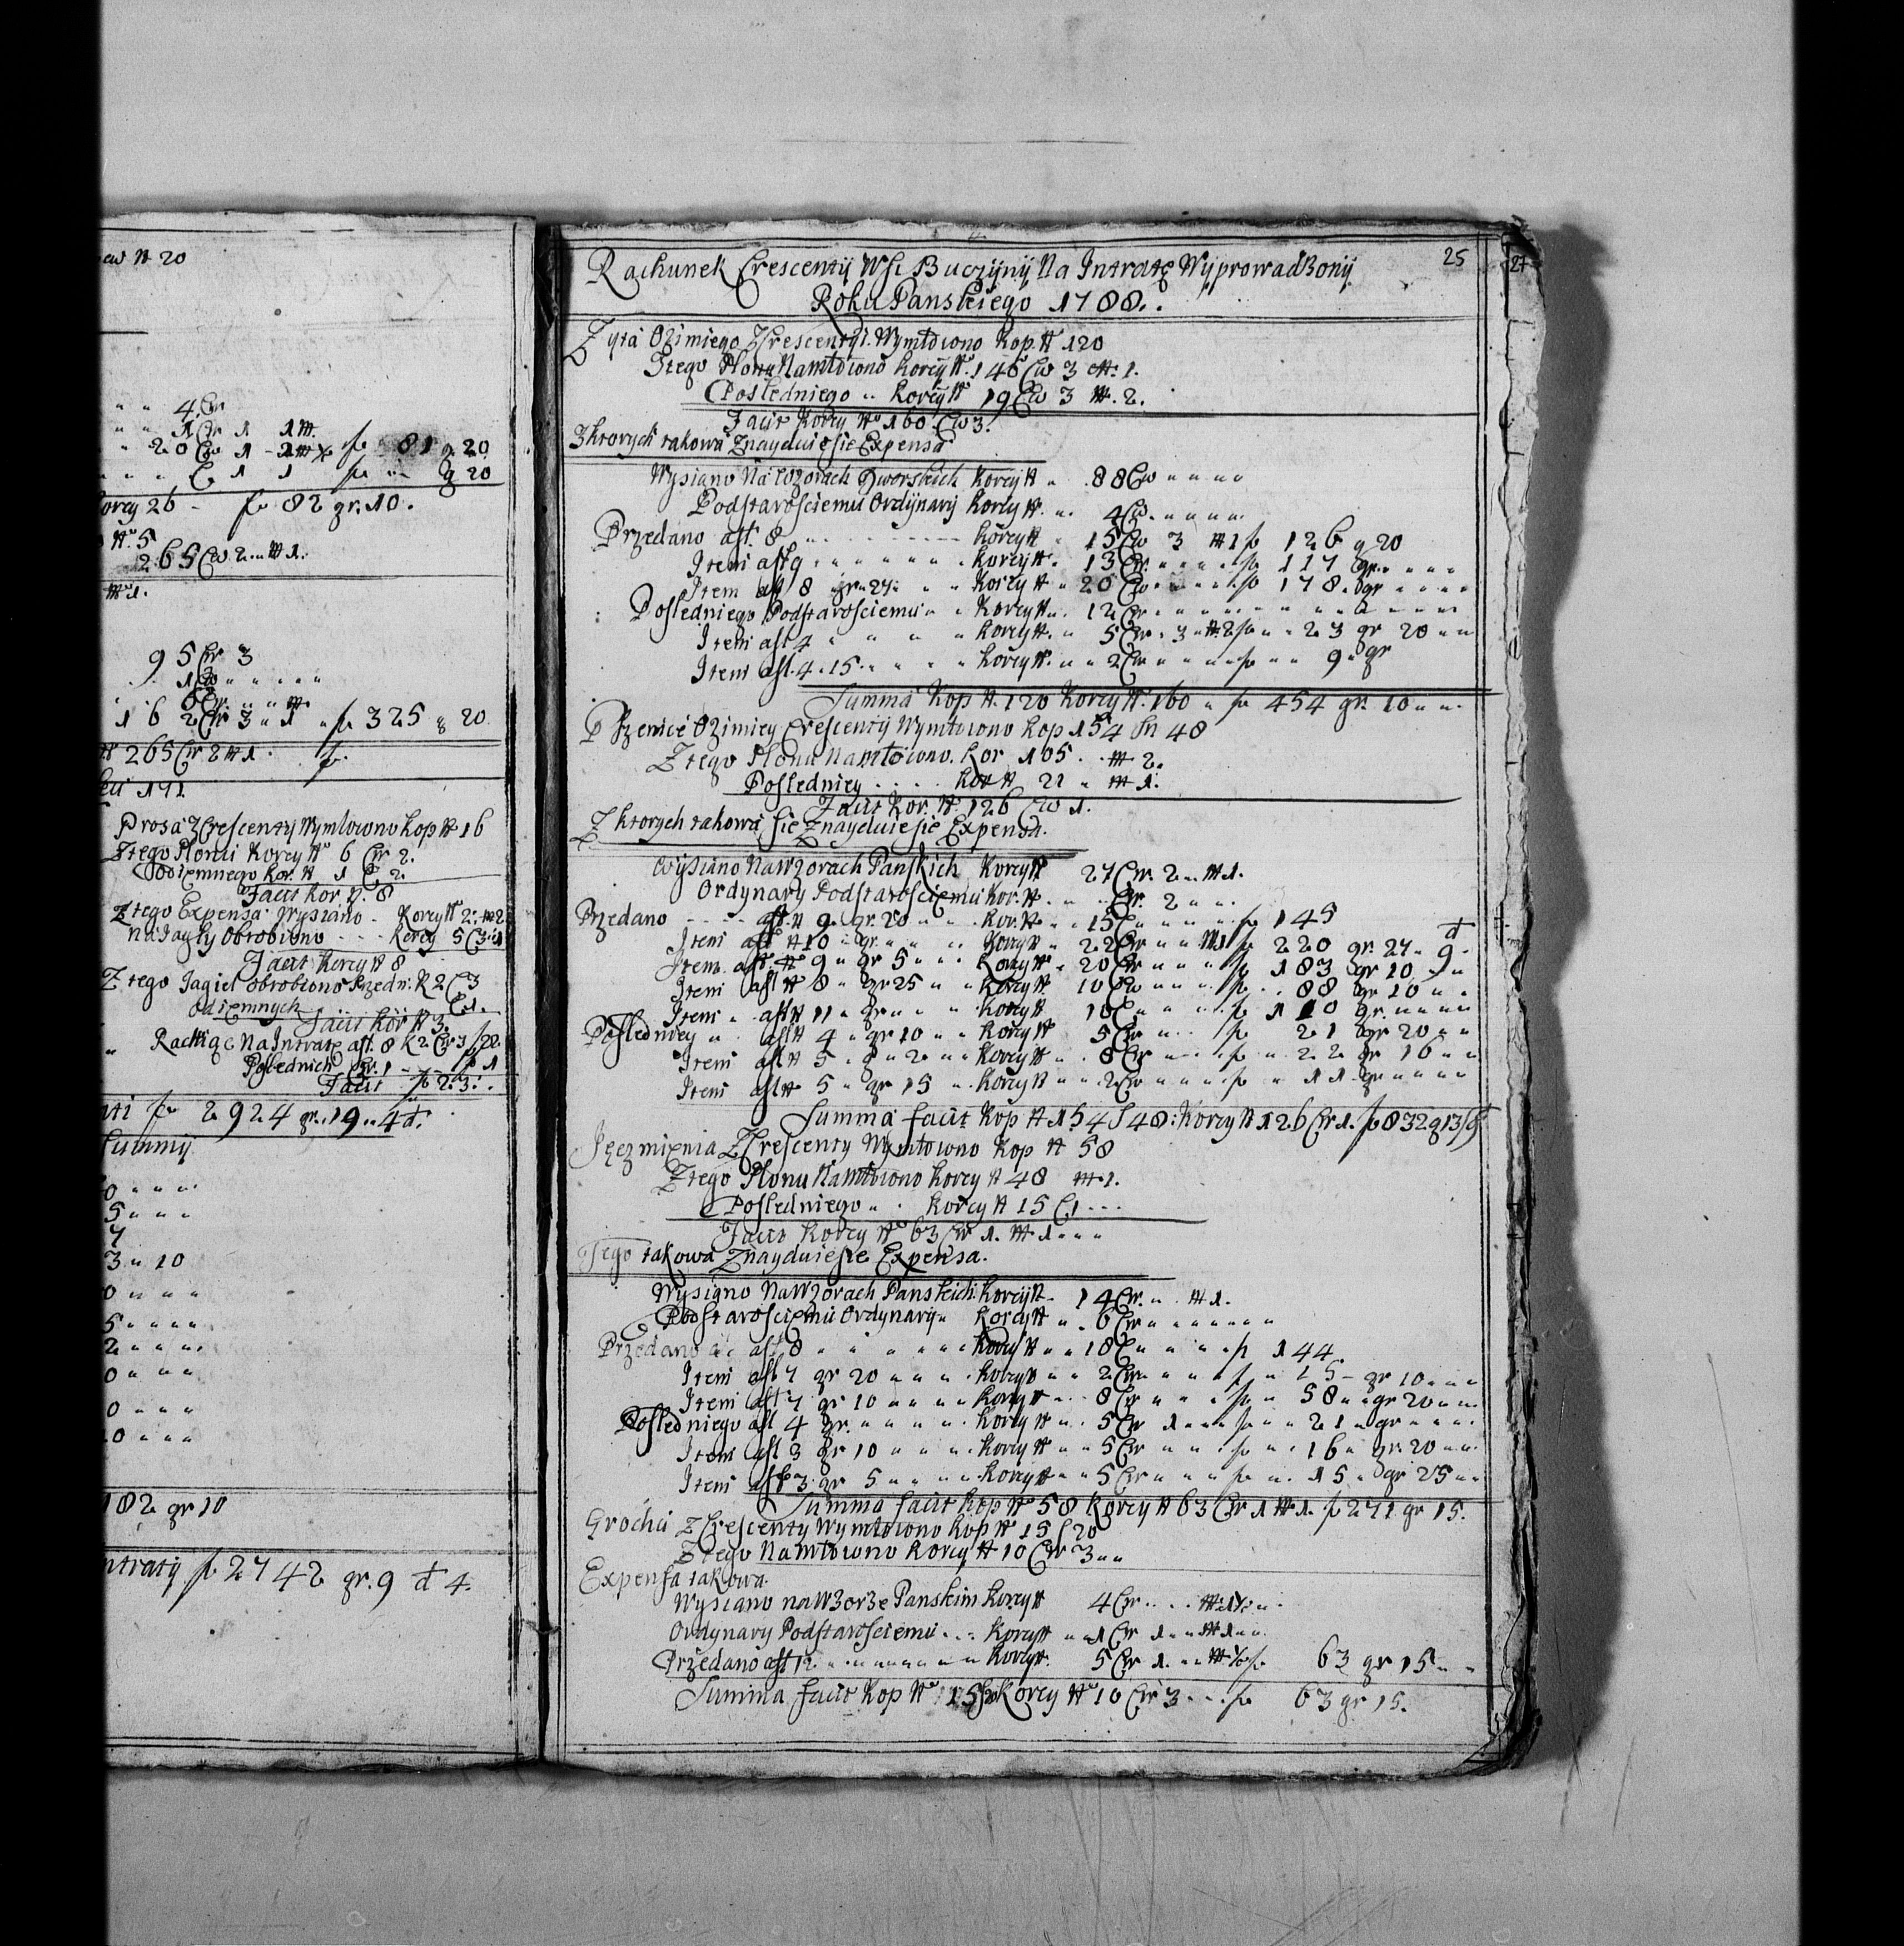 ew N 20
" " 4 Cw
" " 1 Cw 1 1 m.
" 20 Cw 1 - fo 81 g. 20
" " " C 1 1 fo " " g 20
orcy 26 - fo 82 gr. 10.
N 5
265 Cw 2 " m 1.
m 1.
95 Cw 3
1 Cw " " " "
6 Cw. " " m.
162 Cw 3 " 1 " fo 325 g 20
N 265 Cw 2 m 1. fo
Prosa z Crescenty Wymłocono kop N 16
Z tego Plonu Korcy N 6 Cw 2.
Odiemnego Kor. N 1 C 2.
Facit Kor. N. 8
Z tego Expensa Wysiano . Korcy N 2. m 2
Na Jagły Obrobiono - - - Korcy 5 C 3
Facit Korcy N 8
Z tego Jagieł obrobiono Przedn: K 2 C 3
Odiemnych C 1.
Facit Kor N 3.
Na Intratę a fl. 8 K 2 Cw 3 fo 22
Poslednich Cw. 1 - - - fo 1
Facit fo 23.
nti fo 2924 gr. 19 " 4 d.
Summy
0 " " "
5 " " "
7
3 " 10
0 " " "
5 " " " "
2 " " " "
0 " " "
0 " " "
0 " " "
182 gr 10
ntraty fo 2742 gr. 9 d 4.
25
27
Rachunek Crescentÿ Wsi Buczÿnÿ Na Intratę Wÿprowadzonÿ
Roku Panskiego 1788.
Zyta Ozimiego z Crescentyi Wymłocono Kop. N 120
Z tego Plonu Namłocono Korcy N. 146 Cw 3 m. 1.
Posledniego " Korcy N 19 Cw 3 m. 2.
Facit Korcy N 160 Cw 3.
Z ktorych takowa Znayduie sie Expensa
Wysiano Na Wzorach Dworskich Korcy N " 88 Cw " " " "
Podstarosciemu Ordynaryi Korcy N. " 4 Cw. " " " "
Przedano a fl. 8 " - - - - Korcy N " 15 Cw 3 m 1 fo 126 g 20
Item a fl 9 " " " " " Korcy N. 13 Cw. " " " fo 117 gr. " " " "
Item a fl 8 gr " 27. " " Korcy N " 20 Cw " " " fo 178 " gr " " " "
Posledniego Podstarosciemu " " Korcy N. 12 Cw. " " " " " " " "
Item a fl 4 " " " " " Korcy N. " 5 Cw " 3 " m 2 fo " " 23 gr 20 " "
Item a fl. 4 . 15 . " " " " Korcy N. " " 2 Cw " " " " fo " " 9 " gr
Summa Kop N. 120 Korcy N. 160 " fo 454 gr. 10 " "
Pszenice Ozimiey Crescenty Wymłocono kop 154 Sn 48
Z tego Plonu Namłocono. Kor 105 . . m 2.
Posledniey . . . . Kor N 21 " m 1.
Facit Kor. N. 126 Cw 1.
Z ktorych takowa sie Znayduie sie Expensa.
Wysiano Na Wzorach Panskich Korcy N 27 Cw. 2 " m 1.
Ordynary Podstarosciemu Kor. N . " Cw. 2 " " "
Przedano - - - - a fl. N 9 gr. 20 " " " Kor. N " " 15 C " " " " fo 145
Item a fl N 10 " gr. " " " Korcy N " 22 Cw " " m 1 fo 220 gr. 27 " 9 d
Item a fl. N 9 " gr 5 " " " Korcy N " 20 Cw " " " fo 183 gr 10 " "
Item a fl N 8 " gr 25 " " Korcy N 10 Cw " " " fo " " 88 gr 10 " "
Item " a fl N 11 " gr " " " Korcy N 10 C " " " " fo 110 gr. " " " "
Posledniey " a fl N 4 " gr 10 " " Korcy N 5 Cw " " " fo 21 gr 20 " "
Item a fl N 5 . g " 2 " " " Korcy N " 8 Cw " " " fo " 22 gr 16 " "
Item a fl N 5 " gr 15 " . Korcy N " " " 2 Cw " " " " fo " 11 gr " " " "
Summa facit Kop N 154 S 48: Korcy N 126 Cw 1. fo 832 g 13
Jęczmienia z Crescenty Wymłocono Kop N 58
Z tego Plonu Namłocono Korcy N 48 m. 1.
Posledniego " . Korcy N 15 C 1 - - -
Facit Korcy N 63 Cw 1. m 1 " " "
Tego takowa Znayduie sie Expensa.
Wysiano Na Wzorach Panskich: Korcy N " 14 Cw. " m 1.
Podstarosciemu Ordynary " Korcy N " 6 Cw " " " " " "
Przedano a fl 8 " " " " " " Korcy N " " 18 C " " " " fo 144.
Item a fl 7 gr 20 " " " " Korcy N " " 2 Cw " " " " fo " 15 - gr 10 " " "
Item a fl 7 gr 10 " " " " Korcy N " " 8 Cw " " " fo " 58 " " gr 20 " "
Posledniego a fl 4 gr. " " " " " Korcy N " 5 Cw 1 " " " fo " " 21 " gr " " " "
Item a fl 3 gr 10 " " " " Korcy N " " 5 Cw " " " fo " " 16 " gr. 20 " "
Item a fl 3. gr 5 " " " " Korcy N " " 5 Cw " " " fo " " 15 " gr 25 " "
Summa facit Kop N 58 Korcy N 63 Cw 1 m 1. fo 271 gr 15.
Grochu z Crescenty Wymłocono Kop N 15 S 20
Z tego Namłocono Korcy N 10 Cw 3 " "
Expensa takowa.
Wysiano na Wzorze Panskim Korcy N 4 Cw . . . m 1½ " .
Ordynary Podstarosciemu . . . Korcy N " 1 Cw 1 " " m 1 " "
Przedano a fl 12. " " " " " " Korcy N. 5 Cw 1. " " m ½ fo 63 gr 15 " "
Summa facit Kop N 15 S 20 Korcy N 10 Cw 3 - - fo 63 gr 15.